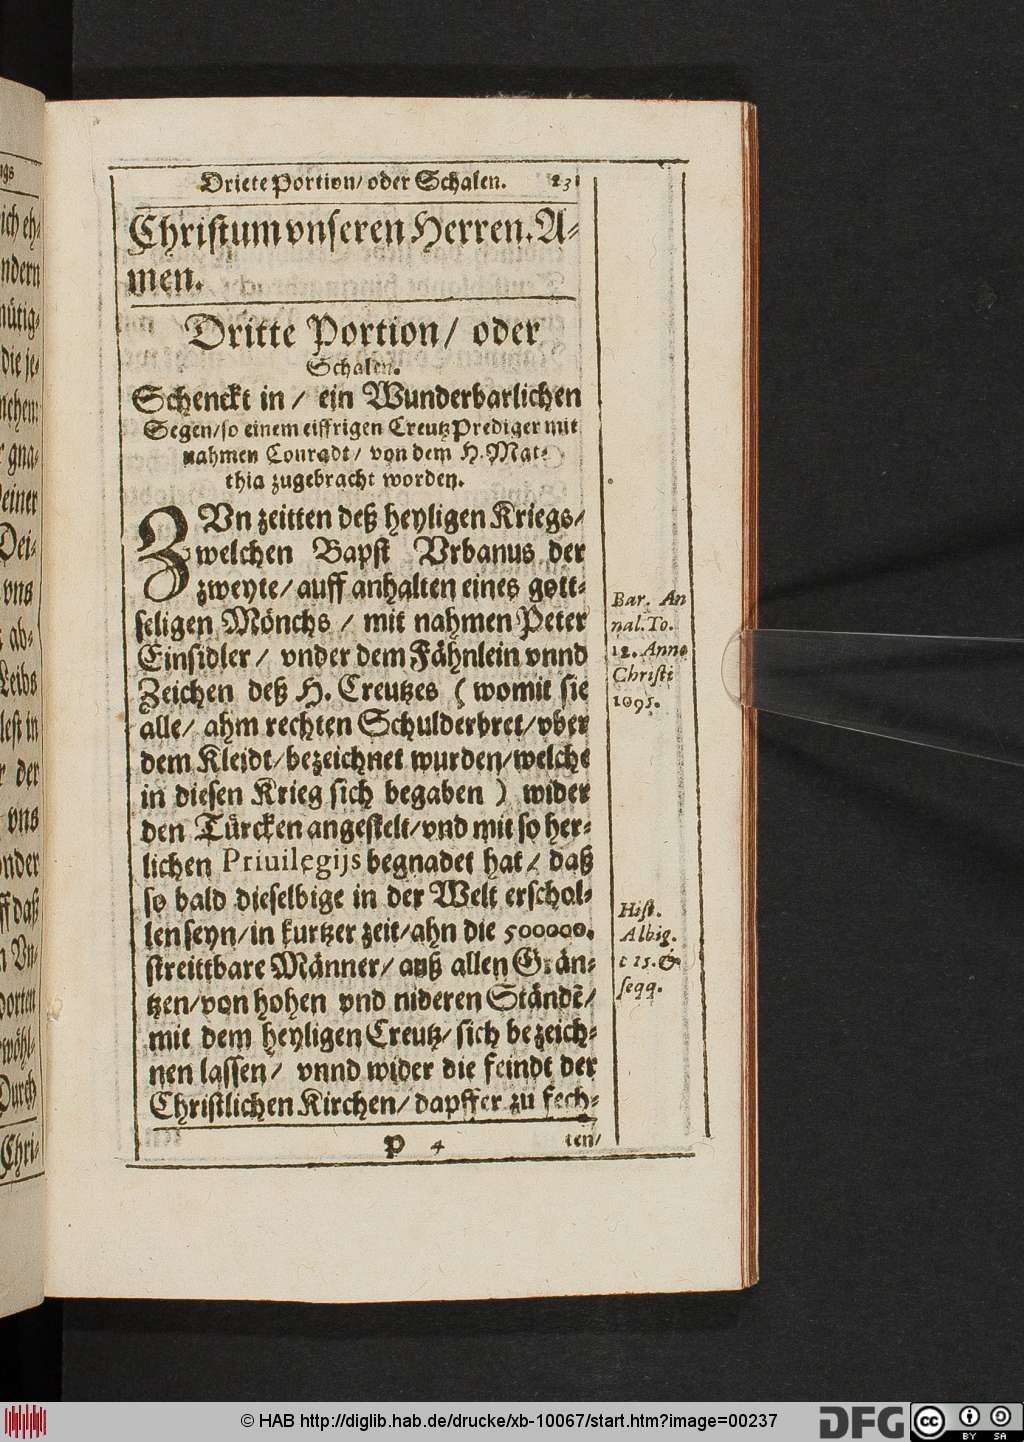 Driete Portion/ oder Schalen. 231
Christum vnseren Herren. A-
men.
Dritte Portion/ oder
Schalen.
Schenckt in/ ein Wunderbarlichen
Segen/ so einem eiffrigen Creutz Prediger mit
nahmen Conradt/ von dem H. Mat-
thia zugebracht worden.
ZVn zeitten deß heyligen Kriegs/
welchen Bapst Vrbanus der
zweyte/ auff anhalten eines gott-
seligen Mönchs/ mit nahmen Peter
Einsidler/ vnder dem Fähnlein vnnd
Zeichen deß H. Creutzes (womit sie
alle/ ahm rechten Schulderbret/ vber
dem Kleidt/ bezeichnet wurden/ welche
in diesen Krieg sich begaben) wider
den Türcken angestelt/ vnd mit so her-
lichen Priuilegijs begnadet hat/ daß
so bald dieselbige in der Welt erschol-
len seyn/ in kurtzer zeit/ ahn die 500000.
streittbare Männer/ auß allen Grän-
tzen/ von hohen vnd nideren Ständẽ/
mit dem heyligen Creutz/ sich bezeich-
nen lassen/ vnnd wider die feindt der
Christlichen Kirchen/ dapffer zu fech-
P 4 ten/
Bar. An
nal. To.
12. Anno
Christi
1095.
Hist.
Albig.
c 15. &
seqq.
ich eh-
ndern
nütig-
die je-
nehem
gna-
Deiner
Dei-
vns
ab-
Leibs
lest in
der
vns
onder
ff daß
Vn-
porten
wöhl-
Durch
Chri-
© HAB http://diglib.hab.de/drucke/xb-10067/start.htm?image=00237
DFG
cc
BY SA